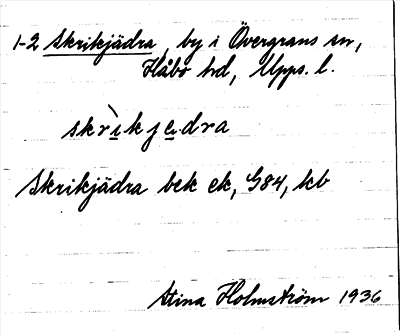 1-2 Skrikjädra, by i Övergrans sn,
Håbo hd, Upps. l.
skrìkjedra
Skrikjädra bek ek, G84, kb
Stina Holmström 1936